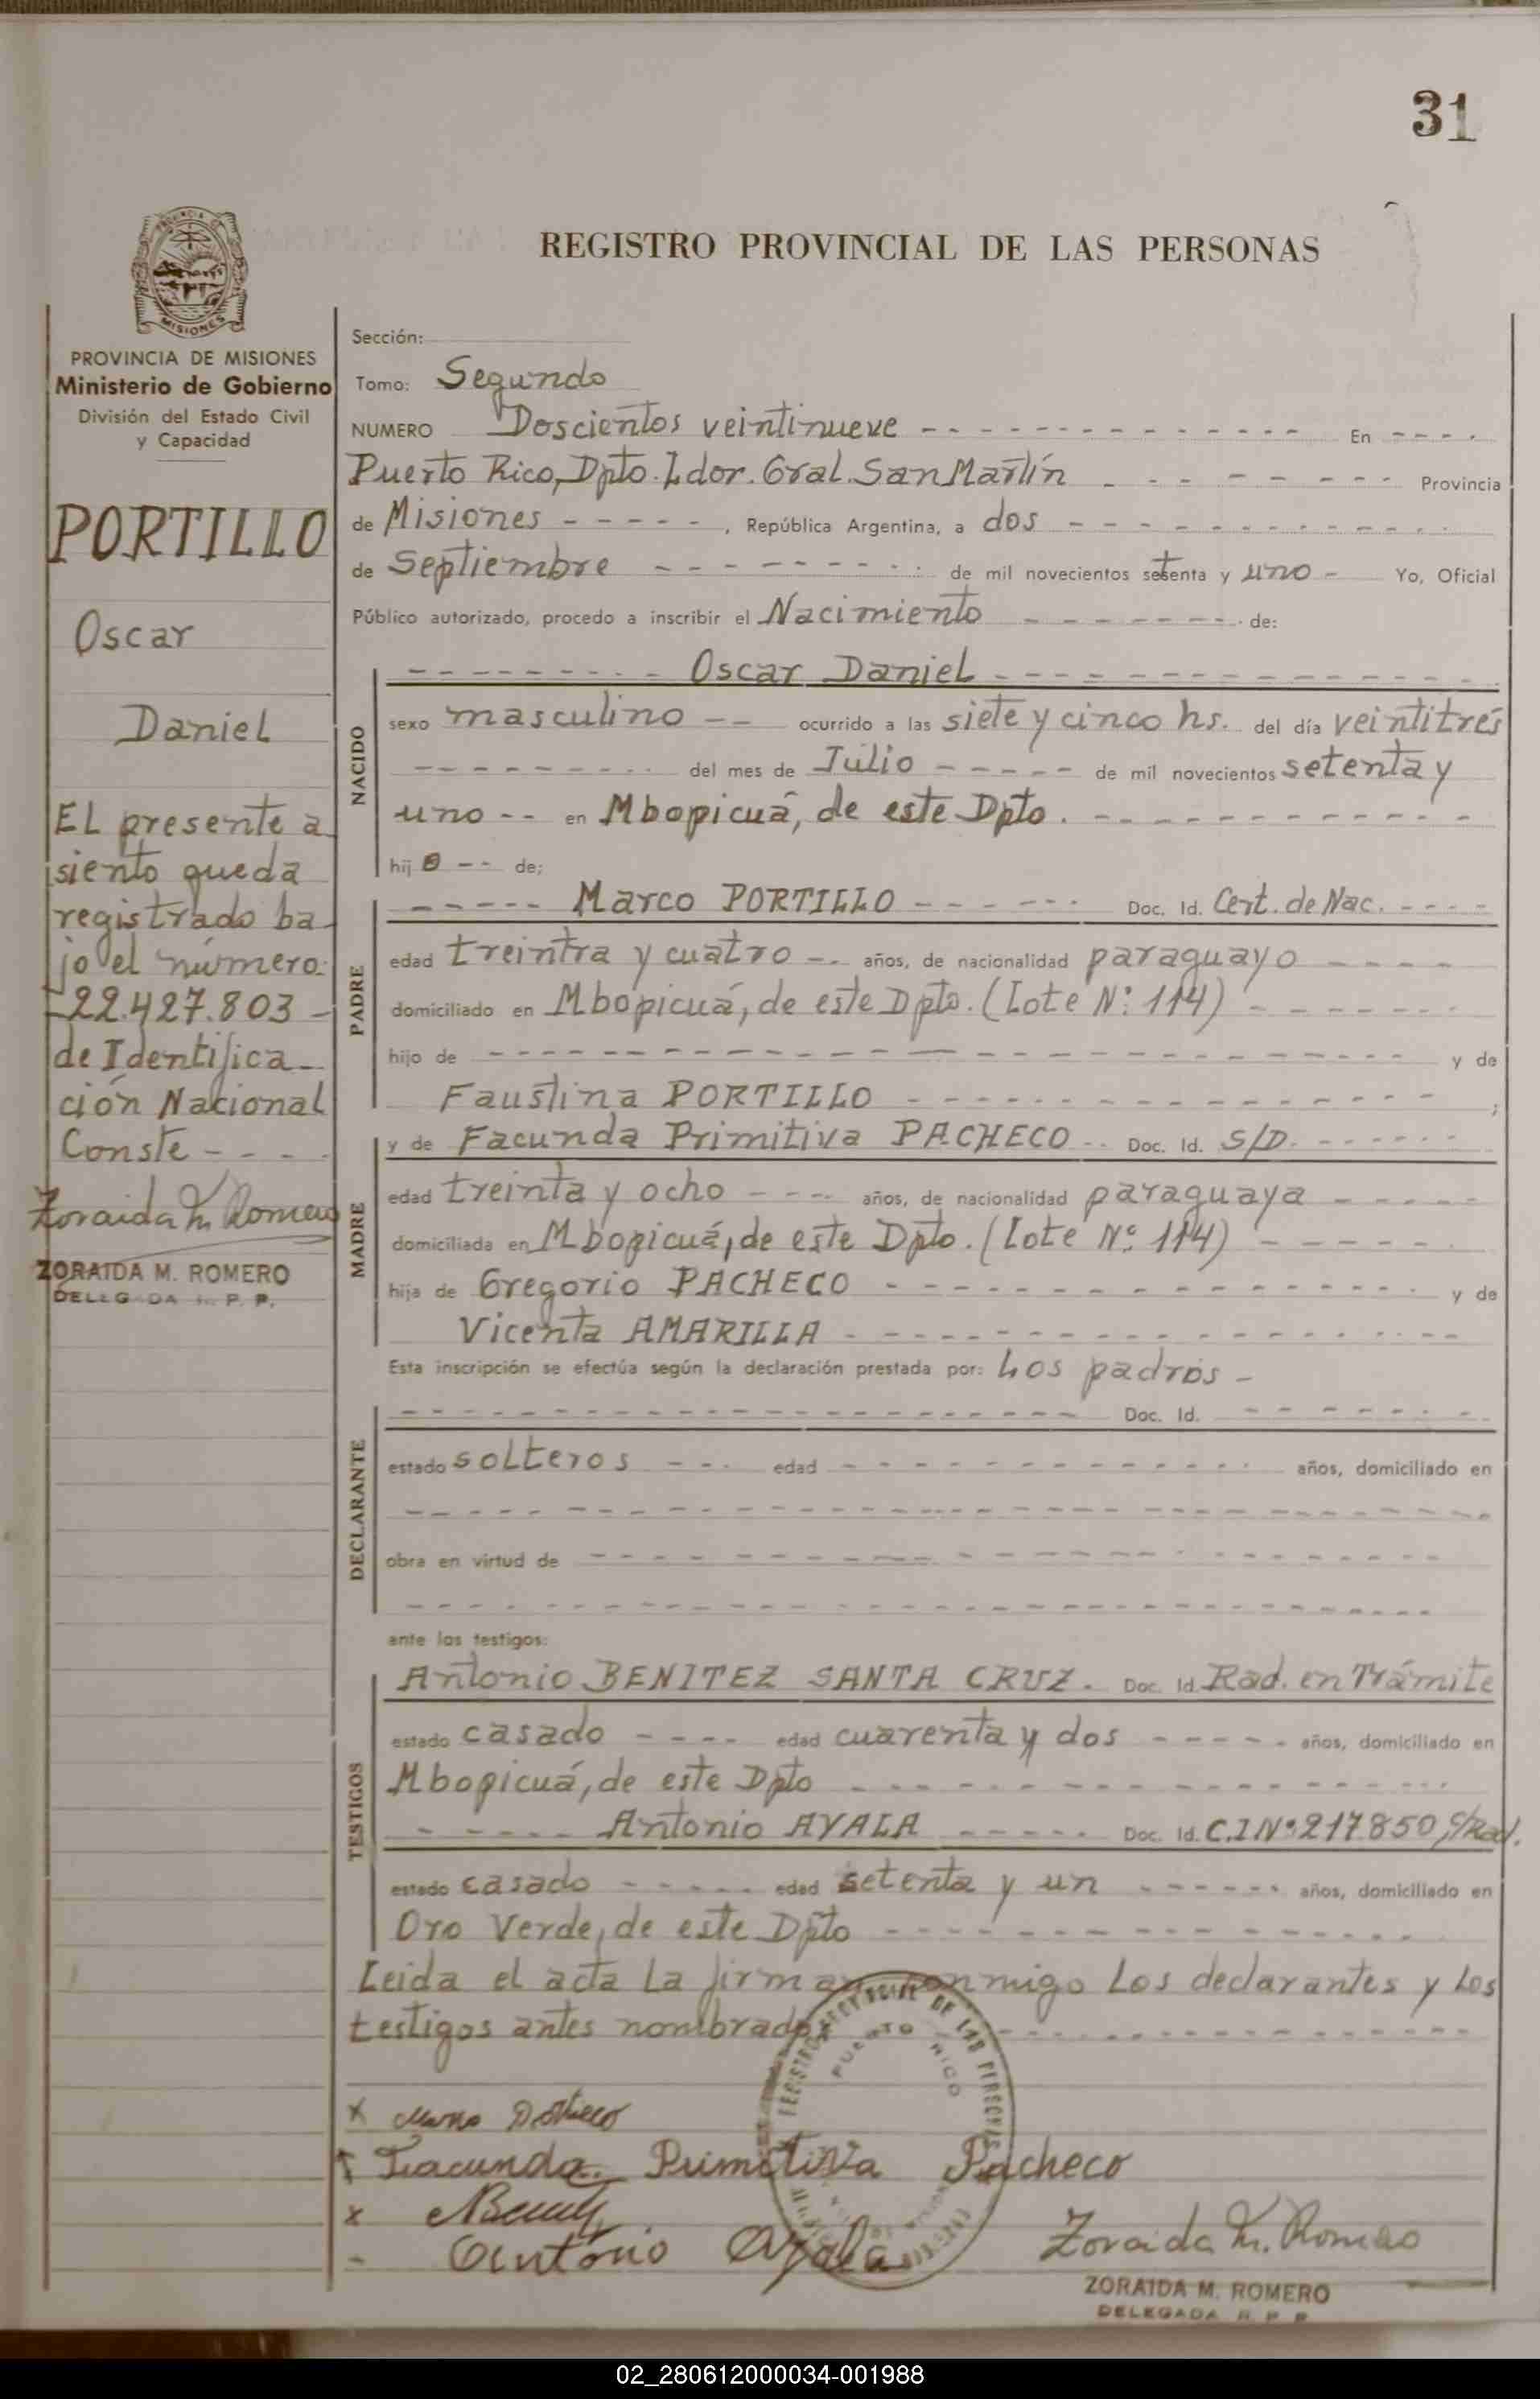 31
REGISTRO PROVINCIAL DE LAS PERSONAS
MISIONES
PROVINCIA DE MISIONES
Ministerio de Gobierno
División del Estado Civil
y Capacidad
PORTILLO
Oscar
Daniel
EL presente a
siento queda
registrado ba-
jo el número:
-22.427.803-
de Identifica-
ción Nacional
Conste - - -
Zoraida M. Romero
ZORAIDA M. ROMERO
DELEGADA R. P. P.
Sección:
Tomo: Segundo
NUMERO Doscientos veintinueve - - - En - - -
Puerto Rico, Dpto. Ldor. Gral. San Martín - - - Provincia
de Misiones - - - , República Argentina, a dos - - -
de Septiembre - - - de mil novecientos setenta y uno - Yo, Oficial
Público autorizado, procedo a inscribir el Nacimiento - - - de:
NACIDO
- - - Oscar Daniel - - -
sexo masculino - - ocurrido a las siete y cinco hs. del día veintitrés
- - - del mes de Julio - - - de mil novecientos setenta y
uno - - en Mbopicuá, de este Dpto. - - -
hijo - - de;
PADRE
- - - Marco PORTILLO - - - Doc. Id. Cert. de Nac. - - -
edad treintra y cuatro - - años, de nacionalidad paraguayo - - -
domiciliado en Mbopicuá, de este Dpto. (Lote Nº 114) - - -
hijo de - - - y de
Faustina PORTILLO - - - ;
MADRE
y de Facunda Primitiva PACHECO - - Doc. Id. S/D. - - -
edad treinta y ocho - - - años, de nacionalidad paraguaya - - -
domiciliada en Mbopicuá, de este Dpto. (Lote Nº 114) - - -
hija de Gregorio PACHECO - - - y de
Vicenta AMARILLA - - -
Esta inscripción se efectúa según la declaración prestada por: Los padres -
DECLARANTE
- - - Doc. Id. - - -
estado solteros - - - edad - - - años, domiciliado en
- - -
obra en virtud de - - -
- - -
ante los testigos:
TESTIGOS
Antonio BENITEZ SANTA CRUZ. Doc. Id. Rad. en Trámite
estado casado - - - edad cuarenta y dos - - - años, domiciliado en
Mbopicuá, de este Dpto - - -
- - - Antonio AYALA - - - Doc. Id. C.I Nº 217.850, c/Rad.
estado casado - - - edad setenta y un - - - años, domiciliado en
Oro Verde, de este Dpto - - -
Leida el acta la firman conmigo los declarantes y los
testigos antes nombrados - - -
REGISTRO PROVINCIAL DE LAS PERSONAS
PUERTO RICO
x Marco Portillo
x Facunda Primitiva Pacheco
x
- Antonio Ayala
Zoraida M. Romero
ZORAIDA M. ROMERO
DELEGADA R. P. P.
02_280612000034-001988